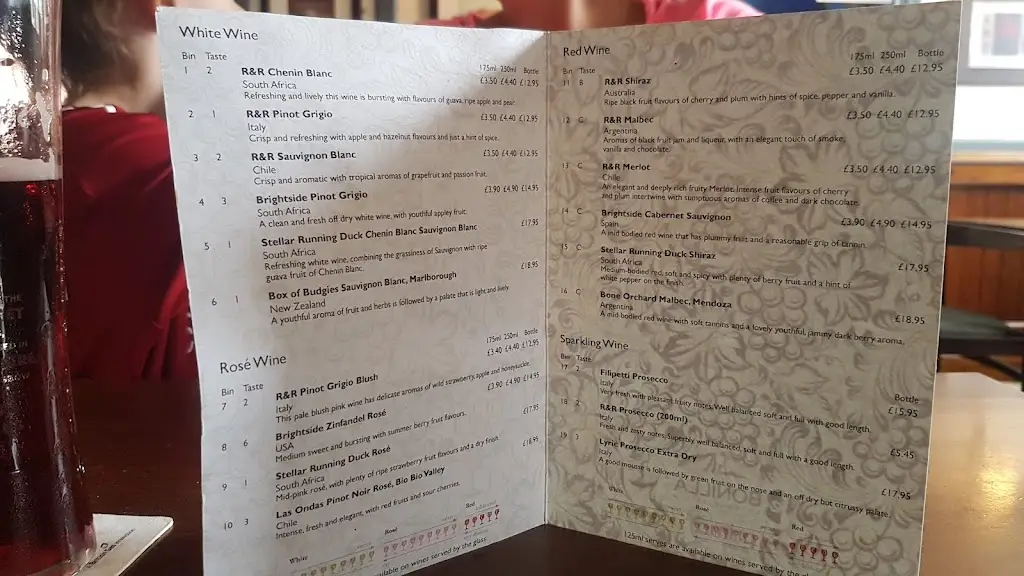 White Wine
Bin Taste
175ml 250ml Bottle
1 2 R&R Chenin Blanc £3.50 £4.40 £12.95
South Africa
Refreshing and lively this wine is bursting with flavours of guava, ripe apple and pear.
2 1 R&R Pinot Grigio £3.50 £4.40 £12.95
Italy
Crisp and refreshing with apple and hazelnut flavours and just a hint of spice.
3 2 R&R Sauvignon Blanc £3.50 £4.40 £12.95
Chile
Crisp and aromatic with tropical aromas of grapefruit and passion fruit.
4 3 Brightside Pinot Grigio £3.90 £4.90 £14.95
South Africa
A clean and fresh off dry white wine, with youthful appley fruit.
5 1 Stellar Running Duck Chenin Blanc Sauvignon Blanc £17.95
South Africa
Refreshing white wine, combining the grassiness of Sauvignon with ripe
guava fruit of Chenin Blanc.
6 1 Box of Budgies Sauvignon Blanc, Marlborough £18.95
New Zealand
A youthful aroma of fruit and herbs is followed by a palate that is light and lively.
Rosé Wine
175ml 250ml Bottle
Bin Taste
7 2 R&R Pinot Grigio Blush £3.40 £4.40 £12.95
Italy
This pale blush pink wine has delicate aromas of wild strawberry, apple and honeysuckle.
8 6 Brightside Zinfandel Rosé £3.90 £4.90 £14.95
USA
Medium sweet and bursting with summer berry fruit flavours.
9 1 Stellar Running Duck Rosé £17.95
South Africa
Mid-pink rosé, with plenty of ripe strawberry fruit flavours and a dry finish.
10 3 Las Ondas Pinot Noir Rosé, Bio Bio Valley £18.95
Chile
Intense, fresh and elegant, with red fruits and sour cherries.
White Rosé Red
available on wines served by the glass.
Red Wine
175ml 250ml Bottle
Bin Taste
11 B R&R Shiraz £3.50 £4.40 £12.95
Australia
Ripe black fruit flavours of cherry and plum with hints of spice, pepper and vanilla.
12 C R&R Malbec £3.50 £4.40 £12.95
Argentina
Aromas of black fruit jam and liqueur, with an elegant touch of smoke,
vanilla and chocolate.
13 C R&R Merlot £3.50 £4.40 £12.95
Chile
An elegant and deeply rich fruity Merlot. Intense fruit flavours of cherry
and plum intertwine with sumptuous aromas of coffee and dark chocolate.
14 C Brightside Cabernet Sauvignon £3.90 £4.90 £14.95
Spain
A mid bodied red wine that has plummy fruit and a reasonable grip of tannin.
15 C Stellar Running Duck Shiraz £17.95
South Africa
Medium-bodied red, soft and spicy with plenty of berry fruit and a hint of
white pepper on the finish.
16 C Bone Orchard Malbec, Mendoza £18.95
Argentina
A mid-bodied red wine with soft tannins and a lovely youthful, jammy dark berry aroma.
Sparkling Wine
Bin Taste
Bottle
17 2 Filipetti Prosecco £15.95
Italy
Very fresh with pleasant fruity notes. Well balanced soft and full with good length.
18 2 R&R Prosecco (200ml) £5.45
Italy
Fresh and zesty notes. Superbly well balanced, soft and full with a good length.
19 3 Lyric Prosecco Extra Dry £17.95
Italy
A good mousse is followed by green fruit on the nose and an off dry but citrussy palate.
White Rosé Red
125ml serves are available on wines served by the